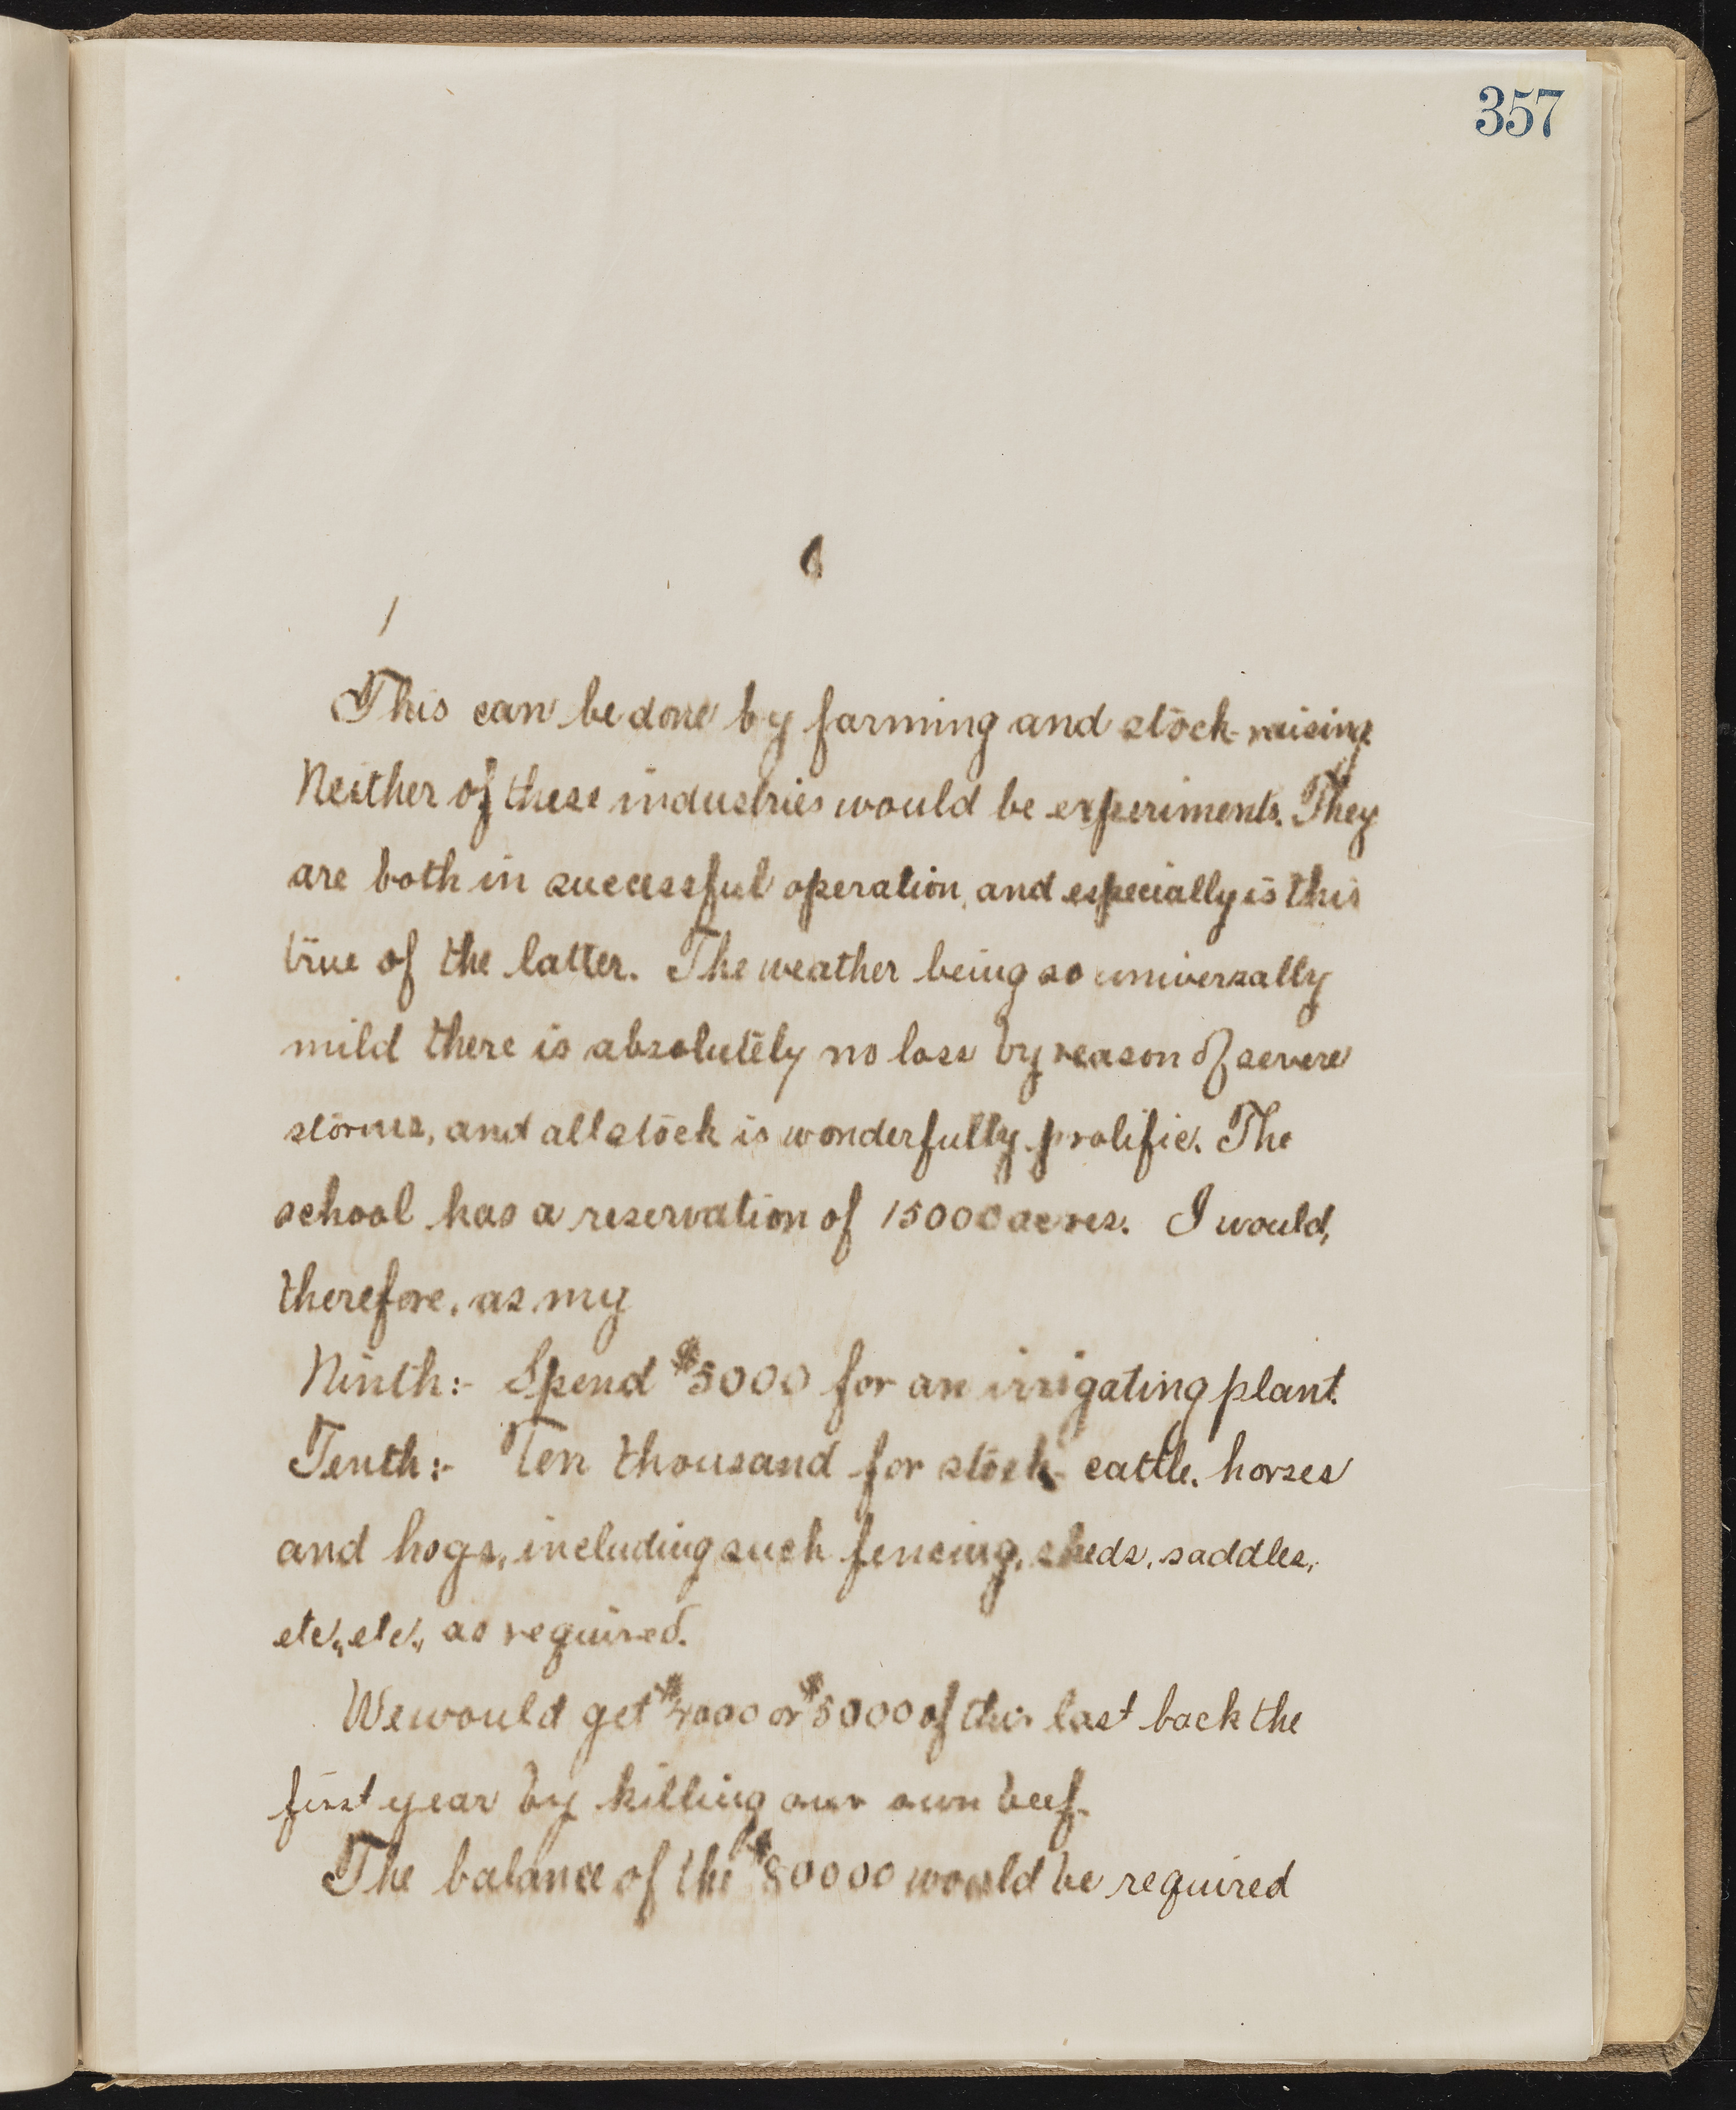 357
6
This can be done by farming and stock-raising.
Neither of these industries would be experiments. They
are both in successful operation, and especially is this
true of the latter. The weather being so universally
mild there is absolutely no loss by reason of severe
storms, and all stock is wonderfully prolific. The
school has a reservation of 15000 acres. I would,
therefore, as my
Ninth:- Spend $5000 for an irrigating plant.
Tenth:- Ten thousand for stock- cattle, horses
and hogs, including such fencing, sheds, saddles,
etc., etc., as required.
We would get $4000 or $5000 of this last back the
first year by killing our own beef.
The balance of the $80000 would be required